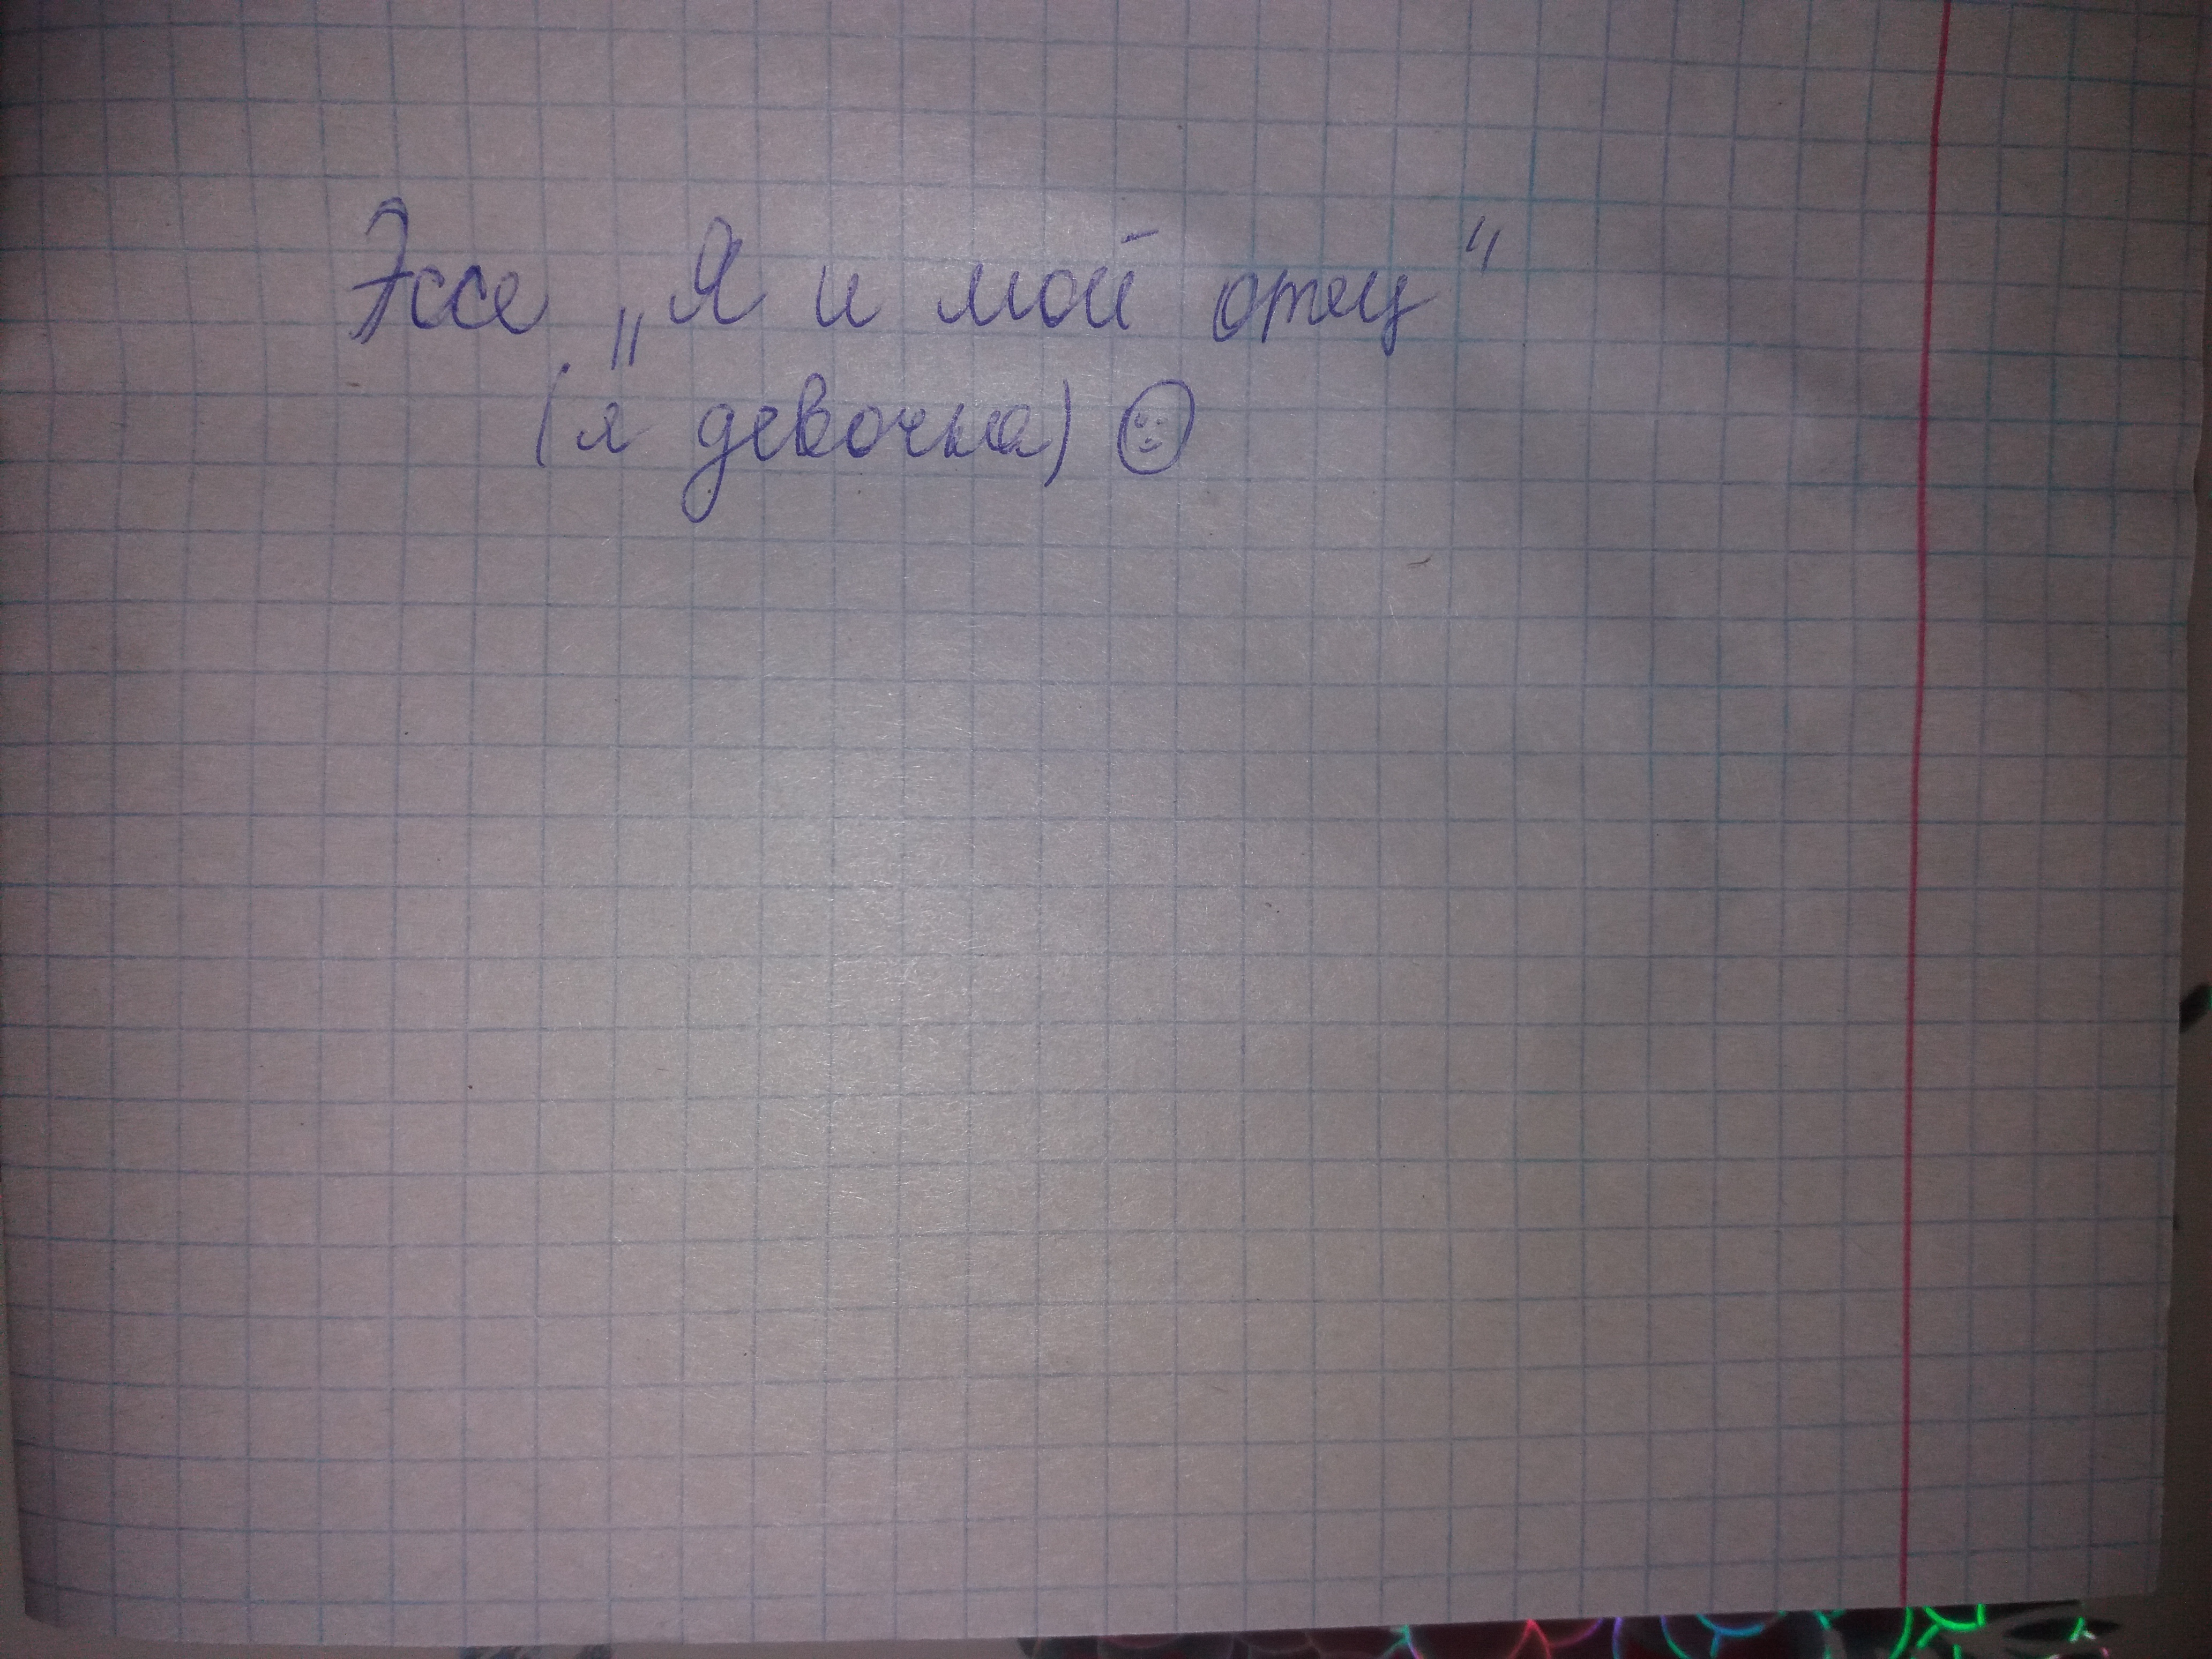 Эссе „Я и мой отец“
(я девочка)